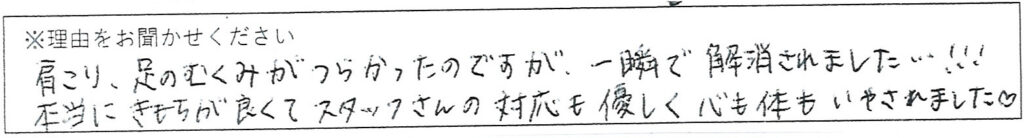 ※理由をお聞かせください
肩こり、足のむくみがつらかったのですが、一瞬で解消されました…!!!
本当にきもちが良くてスタッフさんの対応も優しく心も体もいやされました♡